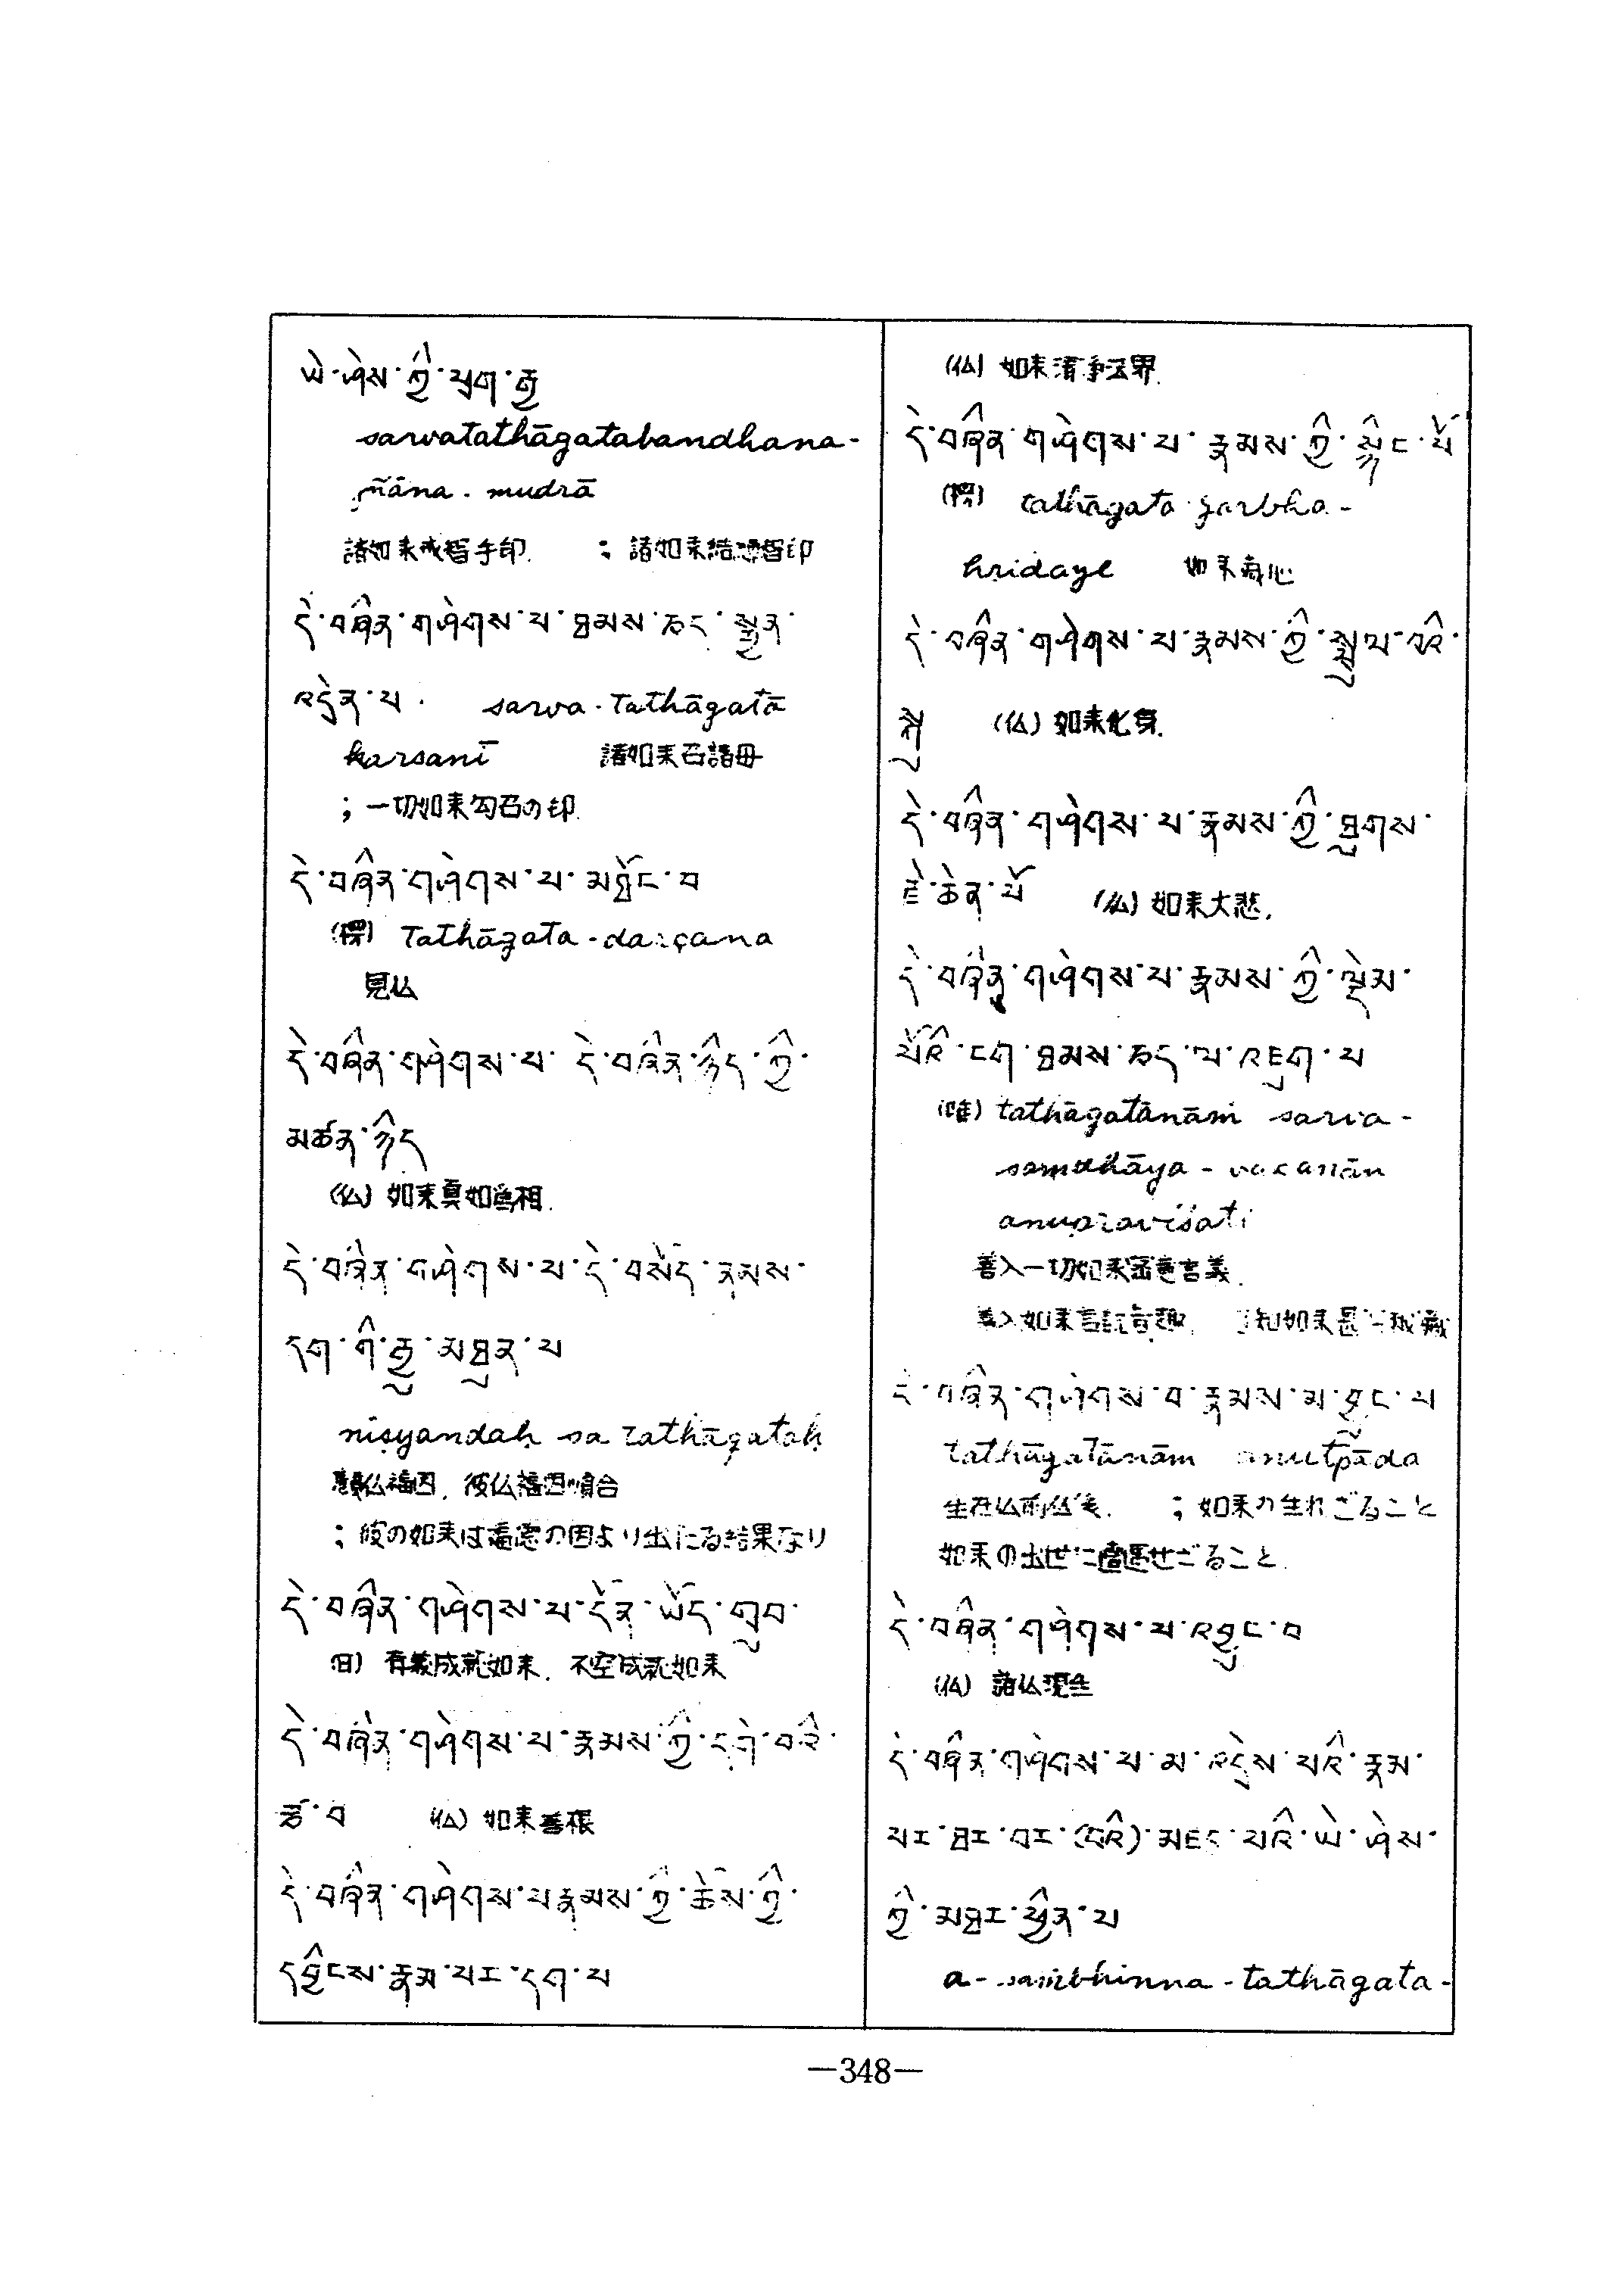 ཡེ་ཤེས་ཀྱི་ཕྱག་རྒྱ
sarvatathāgatabandhana-
jñāna-mudrā
諸如来戒智手印. ; 諸如来結縛智印
དེ་བཞིན་གཤེགས་པ་ཐམས་ཅད་སྤྱན་
འདྲེན་པ. sarva-Tathāgatā
karsanī 諸如来召請母
; 一切如来勾召の印.
དེ་བཞིན་གཤེགས་པ་མཐོང་བ
(標) Tathāgata-darçana
見仏
དེ་བཞིན་གཤེགས་པ་ དེ་བཞིན་ཉིད་ཀྱི་
མཚན་ཉིད
(仏) 如来真如為相.
དེ་བཞིན་གཤེགས་པ་དེ་བསོད་ནམས་
དག་གི་རྒྱུ་མཐུན་པ
niṣyandaḥ sa Tathāgataḥ
仏福因, 彼仏福因順合
; 彼の如来は福徳の因より出たる結果なり
དེ་བཞིན་གཤེགས་པ་དོན་ཡོད་གྲུབ་
(旧) 有義成就如来. 不空成就如来
དེ་བཞིན་གཤེགས་པ་རྣམས་ཀྱི་དགེ་བའི་
རྩ་བ (仏) 如来善根
དེ་བཞིན་གཤེགས་པ་རྣམས་ཀྱི་ཆོས་ཀྱི་
དབྱིངས་རྣམ་པར་དག་པ
(仏) 如来清浄法界.
དེ་བཞིན་གཤེགས་པ་རྣམས་ཀྱི་སྙིང་པོ
(標) tathāgata-garbha-
hridaye 如来蔵心
དེ་བཞིན་གཤེགས་པ་རྣམས་ཀྱི་སྤྲུལ་པའི་
སྐུ (仏) 如来化身.
དེ་བཞིན་གཤེགས་པ་རྣམས་ཀྱི་ཐུགས་
རྗེ་ཆེན་པོ (仏) 如来大悲.
དེ་བཞིན་གཤེགས་པ་རྣམས་ཀྱི་ལྡེམ་
པོའི་ངག་ཐམས་ཅད་ལ་འཇུག་པ
(唯) tathāgatānāṁ sarva-
saṃdhāya-vacanān
anupraviśati
善入一切如来密意言義.
善入如来言説旨趣. 了知如来甚深秘蔵
དེ་བཞིན་གཤེགས་པ་རྣམས་མ་བྱུང་པ
tathāgatānām anutpāda
生在仏前仏後. ; 如来の生れざること
如来の出世に値遇せざること.
དེ་བཞིན་གཤེགས་པ་འབྱུང་བ
(仏) 諸仏現生
དེ་བཞིན་གཤེགས་པ་མ་འདྲེས་པའི་རྣམ་
པར་ཐར་བར་(པའི་)མཛད་པའི་ཡེ་ཤེས་
ཀྱི་མཐར་ཕྱིན་པ
a-saṁbhinna-tathāgata-
—348—